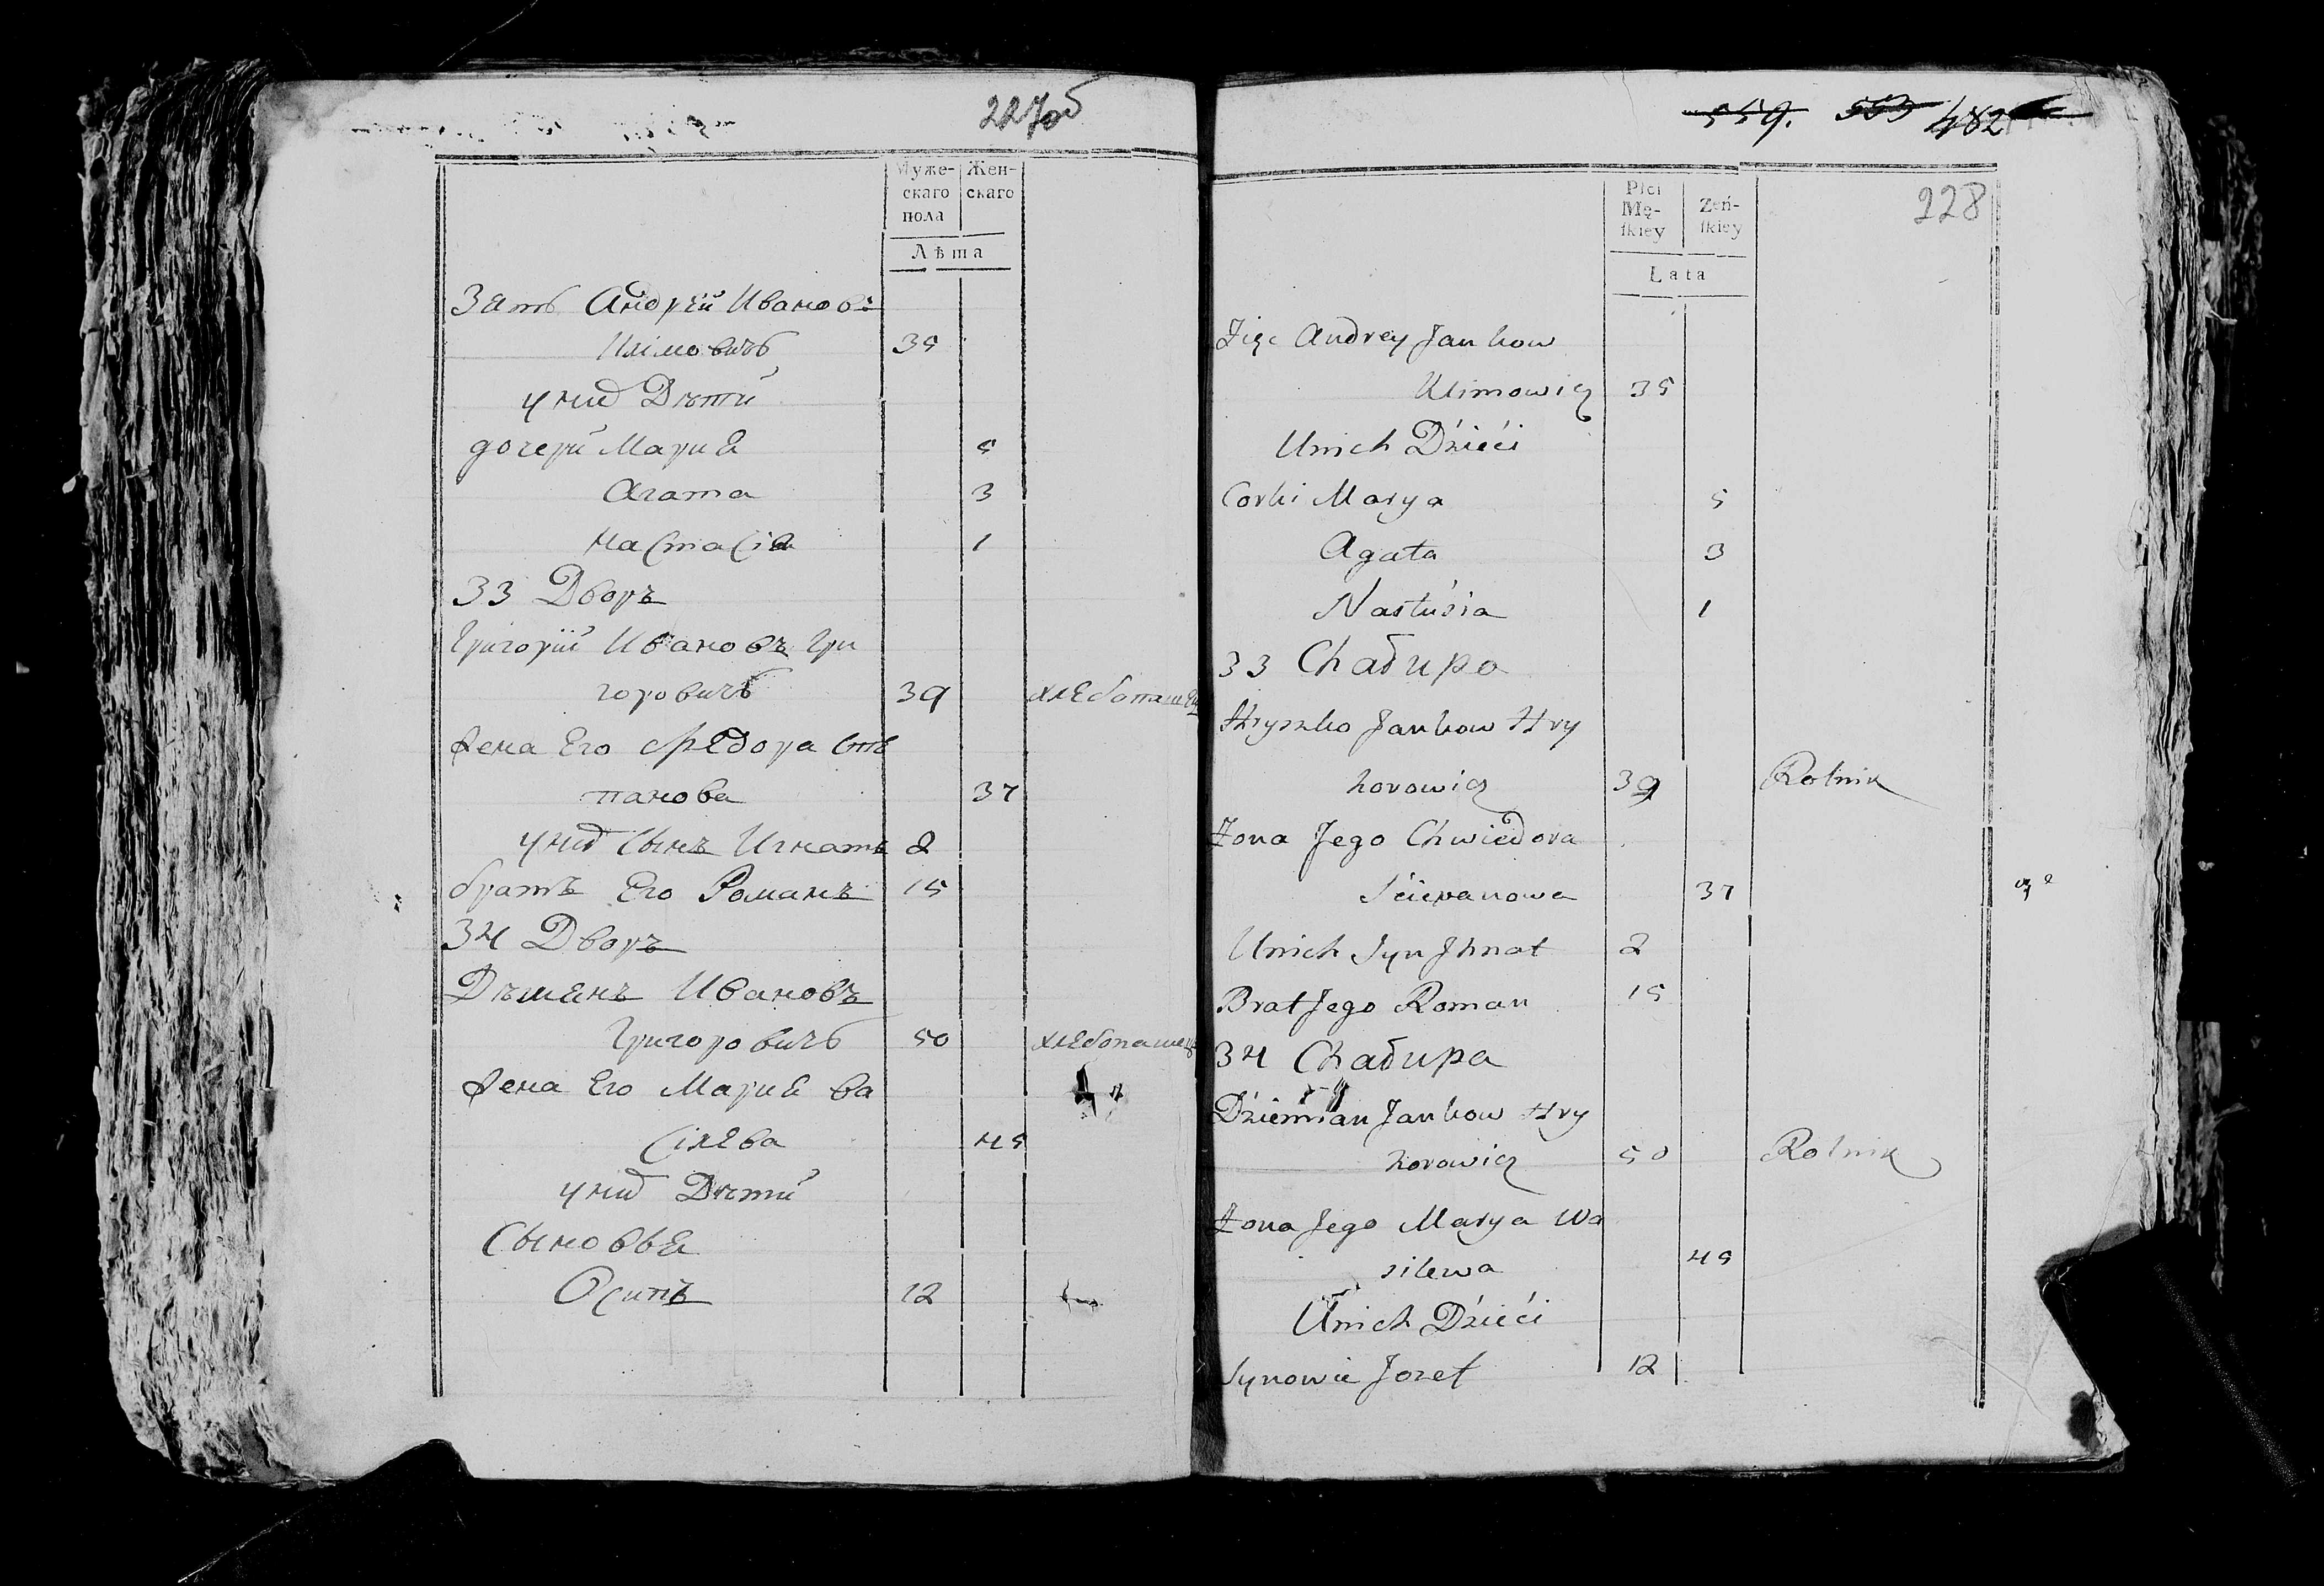 227об
Муже-
скаго
пола
Жен-
скаго
Лѣта
Зять Андрей Иванов:
Климовичъ 35
у них Дѣти
дочери Мариѣ 5
Агата 3
Настасія 1
33 Дворъ
Григорій Ивановъ Гри
горовичъ 39 хлебопашец
Жена Его Федора Сте
панова 37
у них Сынъ Игнатъ 2
братъ Его Романъ 15
34 Дворъ
Дѣмянъ Ивановъ
Григоровичъ 50 хлебопашец
Жена Его Мария Ва
силева 45
у них Дѣти
Сыновья
Осипъ 12
559. 503 482
228
Płci
Mę-
ſkiey
Żeń-
ſkiey
Lata
Zięc Andrey Jankow
Klimowicz 35
Unich Dzieci
Corki Marya 5
Agata 3
Nastusia 1
33 Chałupa
Hryszko Jankow Hry
horowicz 39 Rolnik
Żona Jego Chwiedora
Sciepanowa 37
Unich Syn Jhnat 2
Brat Jego Roman 15
34 Chałupa
Dziemian Jankow Hry
horowicz 50 Rolnik
Żona Jego Marya Wa
silewa 45
Unich Dzieci
Synowie Jozef 12